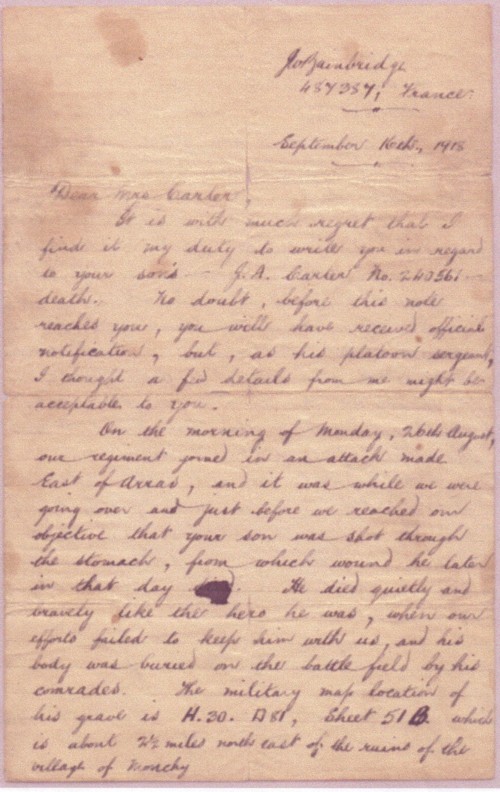 Jn Bainbridge
487387, France.
September 16th, 1918
Dear Mrs Carter,
It is with much regret that I
find it my duty to write you in regard
to your son's — J.A. Carter No. 240561 —
death. No doubt, before this note
reaches you, you will have received official
notification, but, as his platoon sergeant,
I thought a few details from me might be
acceptable to you.
On the morning of Monday, 26th August,
our regiment joined in an attack made
East of Arras, and it was while we were
going over and just before we reached our
objective that your son was shot through
the stomach, from which wound he later
in that day . He died quietly and
bravely like the hero he was, when our
efforts failed to keep him with us, and his
body was buried on the battle field by his
comrades. The military map location of
his grave is H.30. D81, Sheet 51 B which
is about 2½ miles north east of the ruins of the
village of Monchy